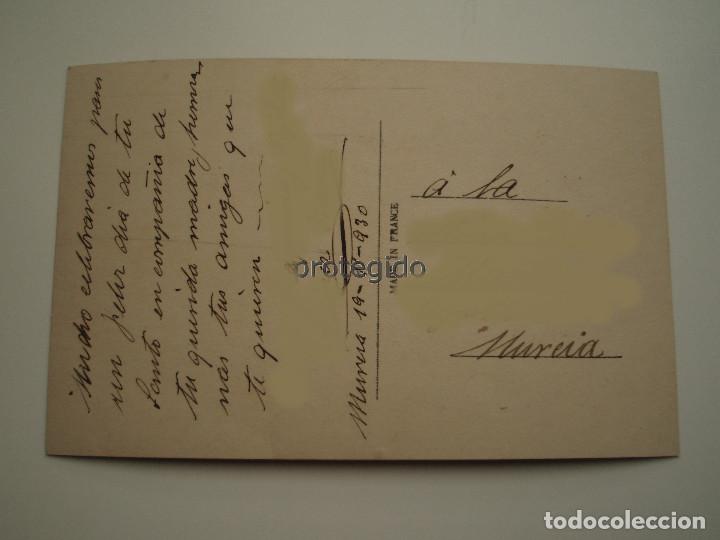 Mucho celebraremos pases
un feliz dia de tu
Santo en compañia de
tu querida madre, herma
nas tus amigas que
te quieren
Murcia 19- -930
MADE IN FRANCE
á la
Murcia
protegido
todocoleccion
todocoleccion.net